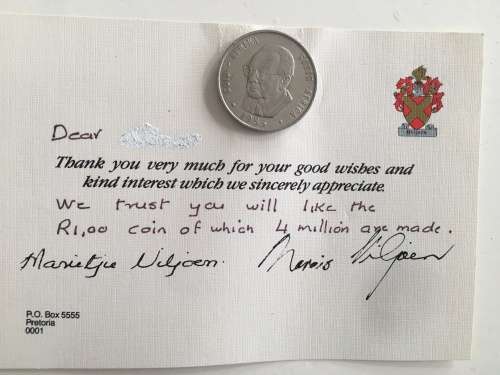 Dear
Thank you very much for your good wishes and
kind interest which we sincerely appreciate.
We trust you will like the
R1,00 coin of which 4 million are made.
Marietjie Viljoen. Marais Viljoen
P.O. Box 5555
Pretoria
0001